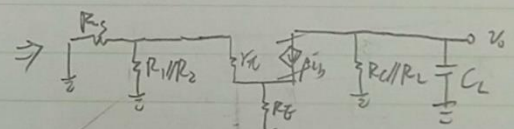 ⇒
Rs
R1//R2
rπ
βib
RE
RC//RL
CL
vo